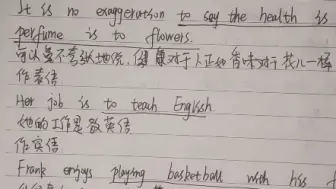 It is no exaggeration to say the health is
perfume is to flowers.
可以毫不夸张地说，健康对于人正如香味对于花儿一样
作表语
Her job is to teach English
她的工作是教英语
作宾语
Frank enjoys playing basketball with his